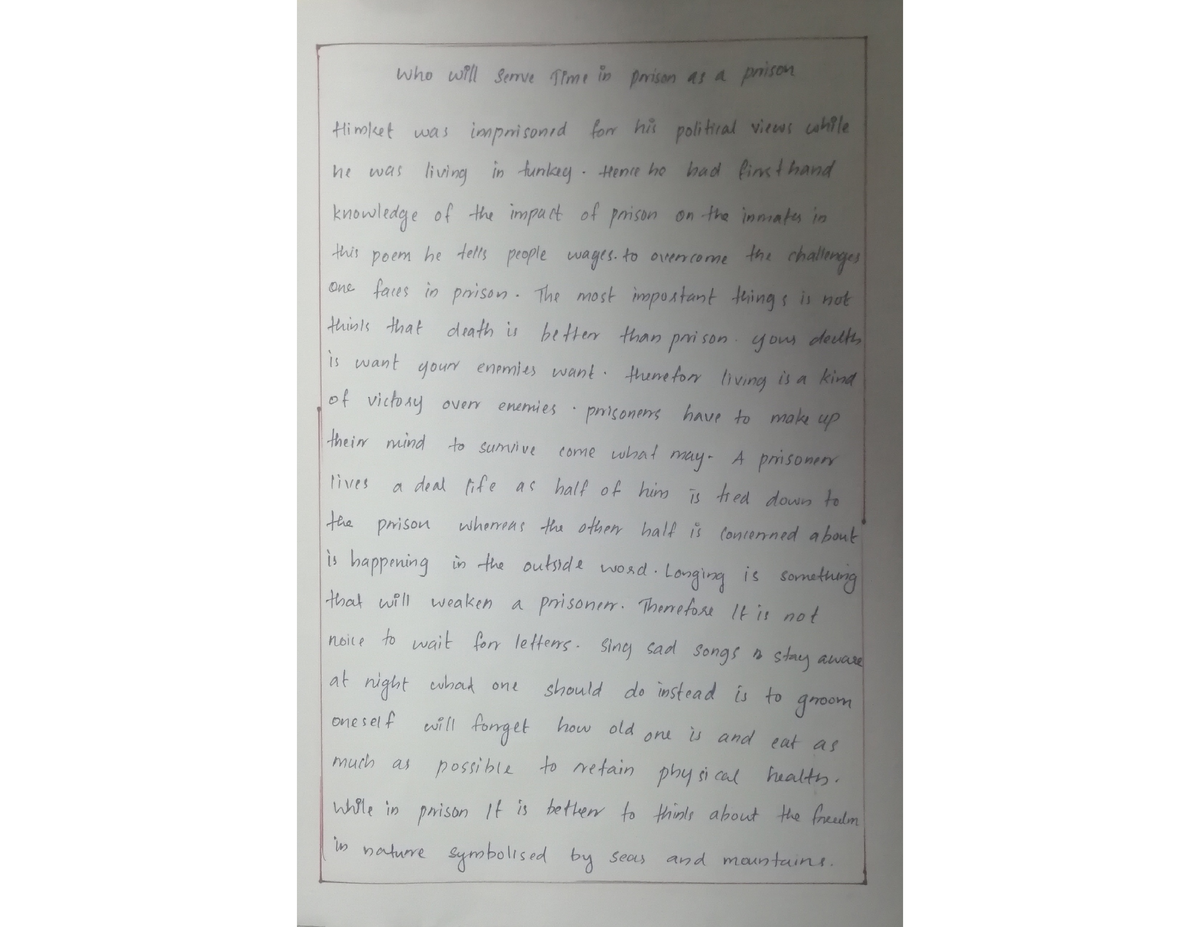 who will serve Time in prison as a prison
Himket was imprisoned for his political views while
he was living in turkey. Hence he had first hand
knowledge of the impact of prison on the inmates in
this poem he tells people wages. to overcome the challenges
one faces in prison. The most important things is not
thinls that death is better than prison. your death
is want your enemies want. therefor living is a kind
of victory over enemies. prisoners have to make up
their mind to survive come what may- A prisoner
lives a deal life as half of him is tied down to
the prison whereas the other half is concerned about
is happening in the outside word. Longing is something
that will weaken a prisoner. Therefore It is not
noice to wait for letters. sing sad songs & stay aware
at night what one should do instead is to groom
oneself will forget how old one is and eat as
much as possible to retain physical health.
while in prison It is better to thinls about the freedm
in nature symbolised by seas and mountains.